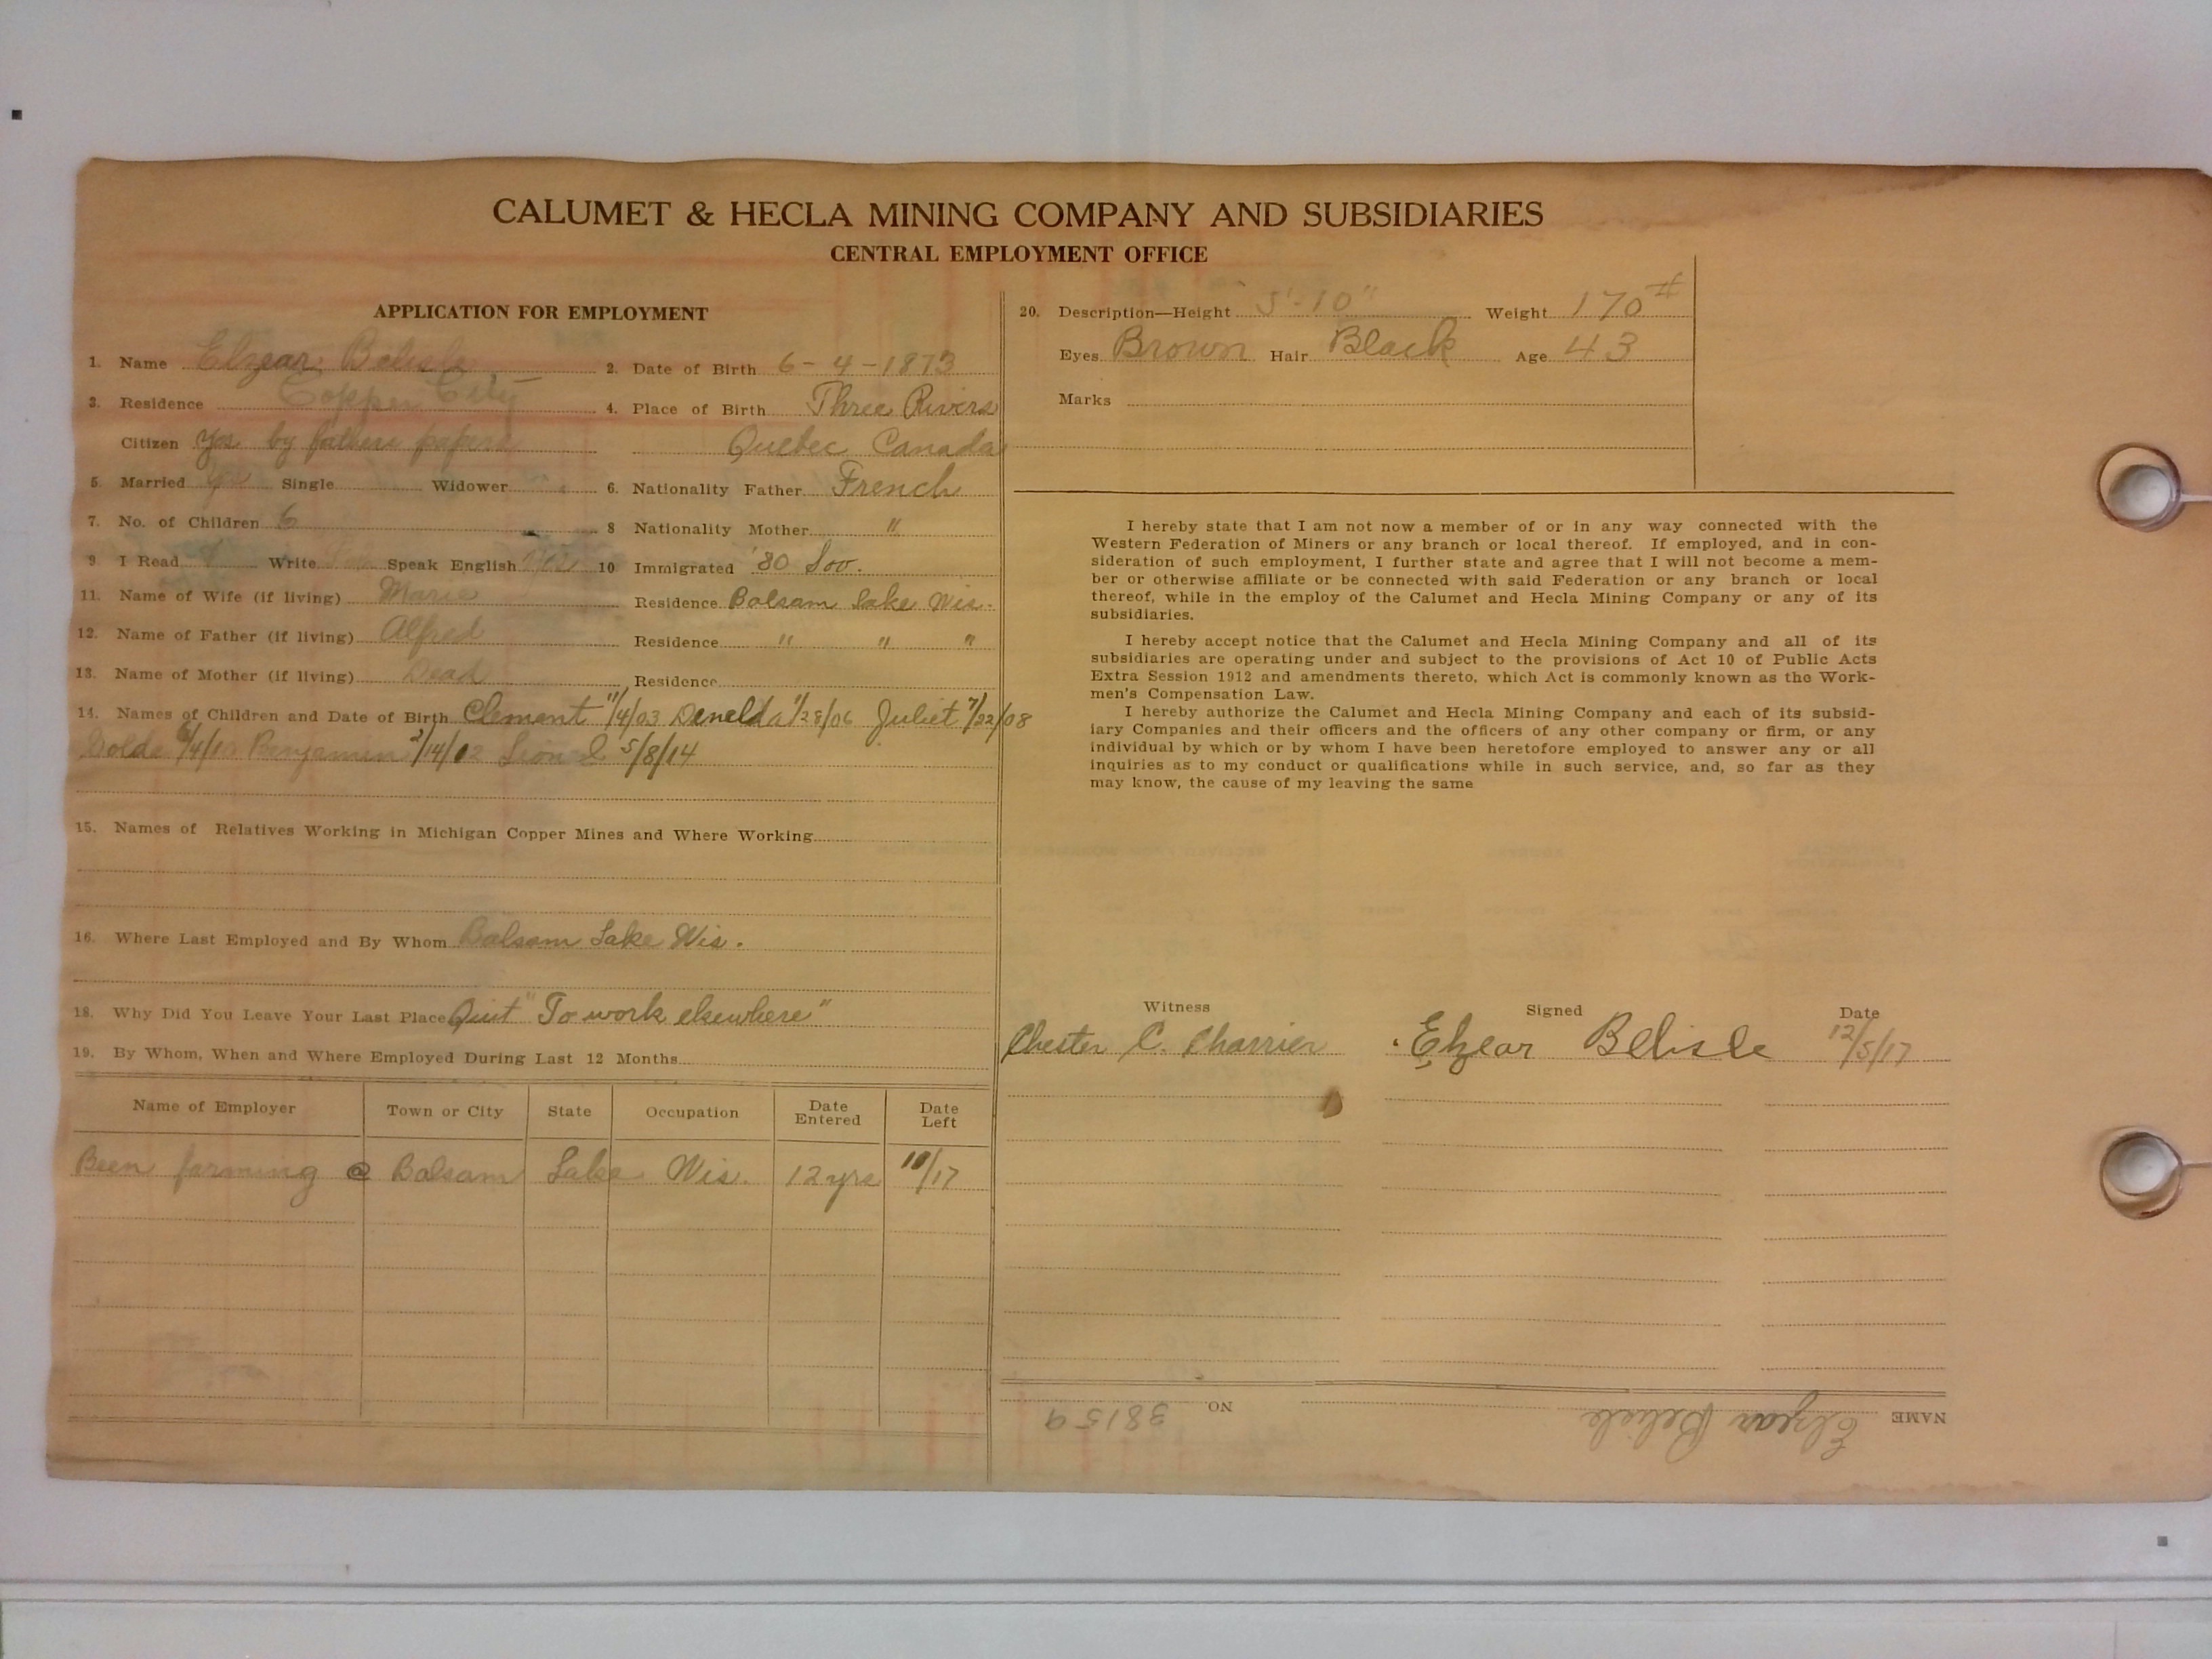 CALUMET & HECLA MINING COMPANY AND SUBSIDIARIES
CENTRAL EMPLOYMENT OFFICE
APPLICATION FOR EMPLOYMENT
1. Name Elzear Belisle 2. Date of Birth 6-4-1873
3. Residence Copper City 4. Place of Birth Three Rivers
Citizen Yes by fathers papers Quebec Canada
5. Married Yes Single Widower 6. Nationality Father French
7. No. of Children 6 8 Nationality Mother "
9. I Read Write Speak English 10 Immigrated '80 Soo.
11. Name of Wife (if living) Marie Residence Balsam Lake Wis.
12. Name of Father (if living) Alfred Residence " " "
13. Name of Mother (if living) Dead Residence
14. Names of Children and Date of Birth Clement 11/4/03 Denelda 1/28/06 Juliet 7/22/08
Benjamin 2/14/12 5/8/14
15. Names of Relatives Working in Michigan Copper Mines and Where Working
16. Where Last Employed and By Whom Balsam Lake Wis.
18. Why Did You Leave Your Last Place Quit "To work elsewhere"
19. By Whom, When and Where Employed During Last 12 Months
Name of Employer Town or City State Occupation Date Entered Date Left
Been farming @ Balsam Lake Wis. 12 yrs 10/17
20. Description—Height 5'-10" Weight 170#
Eyes Brown Hair Black Age 43
Marks
I hereby state that I am not now a member of or in any way connected with the
Western Federation of Miners or any branch or local thereof. If employed, and in con-
sideration of such employment, I further state and agree that I will not become a mem-
ber or otherwise affiliate or be connected with said Federation or any branch or local
thereof, while in the employ of the Calumet and Hecla Mining Company or any of its
subsidiaries.
I hereby accept notice that the Calumet and Hecla Mining Company and all of its
subsidiaries are operating under and subject to the provisions of Act 10 of Public Acts
Extra Session 1912 and amendments thereto, which Act is commonly known as the Work-
men's Compensation Law.
I hereby authorize the Calumet and Hecla Mining Company and each of its subsid-
iary Companies and their officers and the officers of any other company or firm, or any
individual by which or by whom I have been heretofore employed to answer any or all
inquiries as to my conduct or qualifications while in such service, and, so far as they
may know, the cause of my leaving the same
Witness Signed Date
Chester C. Charrier Elzear Belisle 12/5/17
NAME Elzear Belisle NO. 38159